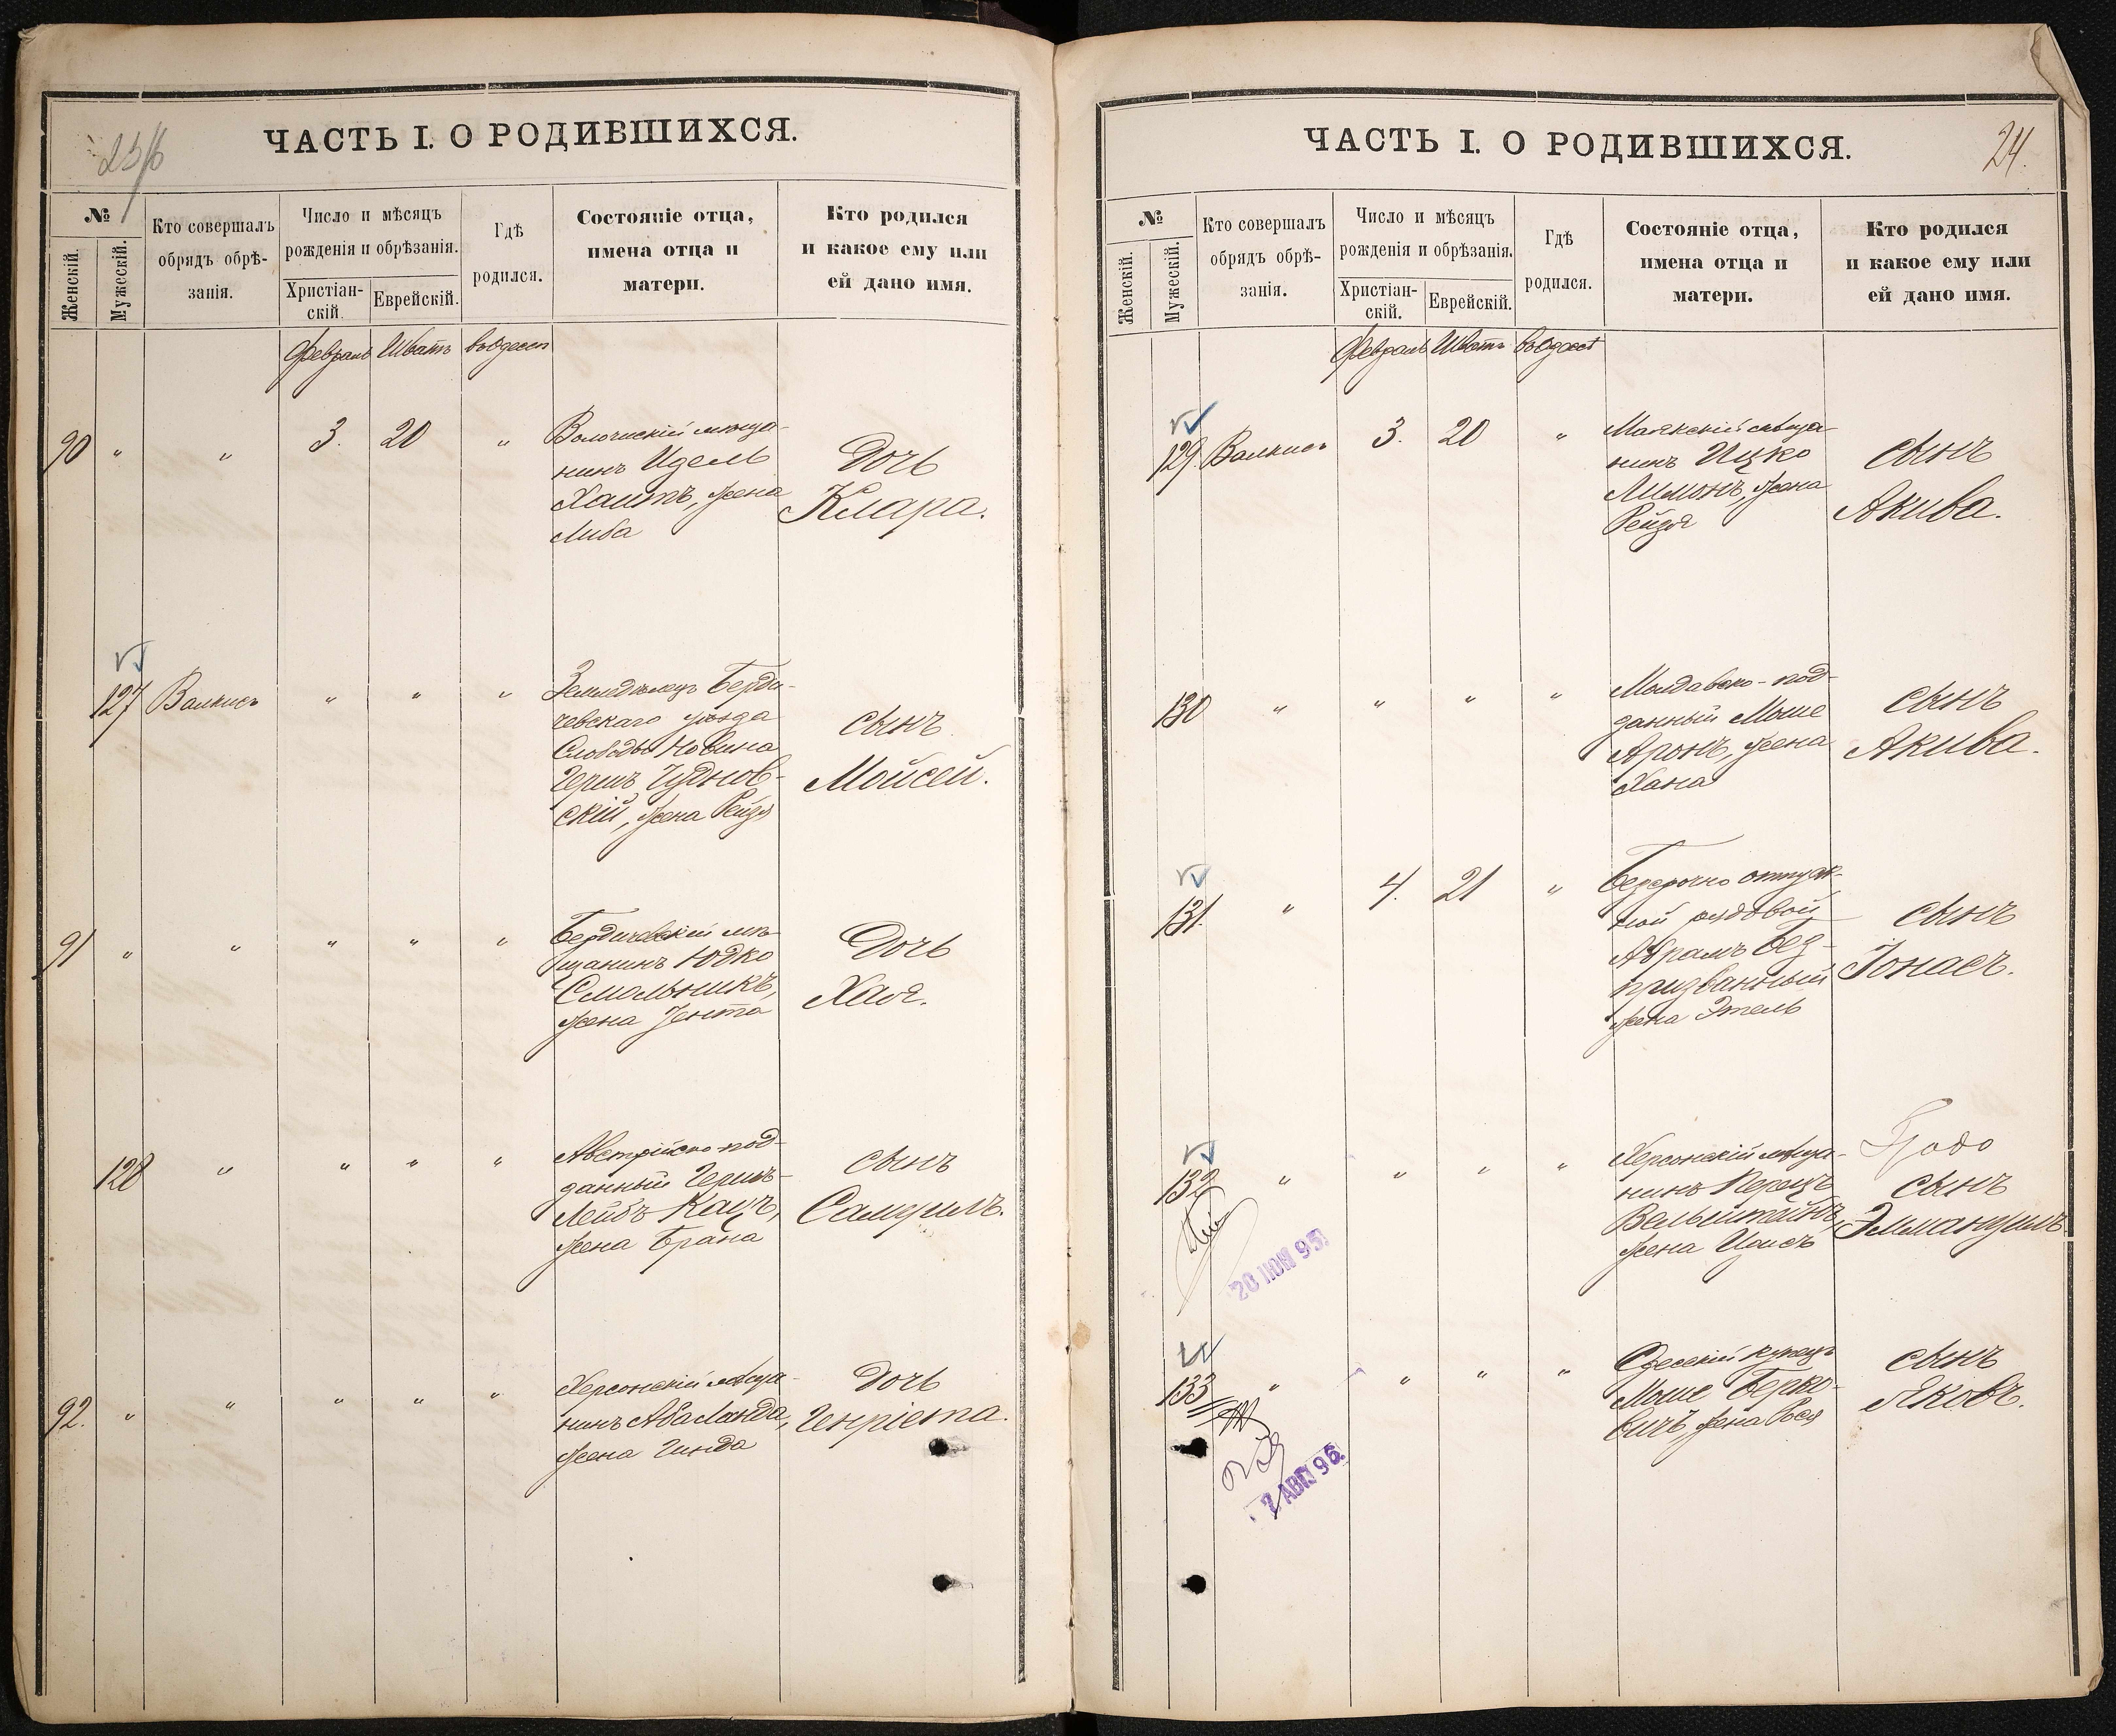 23/б
ЧАСТЬ I. О РОДИВШИХСЯ.
№
Женскій.
Мужескій.
Кто совершалъ
обрядъ обрѣ-
занія.
Число и мѣсяцъ
рожденія и обрѣзанія.
Христіан-
скій.
Еврейскій.
Гдѣ
родился.
Состояніе отца,
имена отца и
матери.
Кто родился
и какое ему или
ей дано имя.
Февраль Шватъ въ Одессѣ
90 " " 3. 20 "
Волочискій мѣща-
нинъ Идель
Хаитъ, жена
Либа
Дочь
Клара.
127 Валкисъ " " "
Земледѣлецъ Берди-
чевскаго уѣзда
Слободы Новина
Гершъ Чуднов-
скій, жена Рейзя
сынъ
Мойсей.
91 " " " " "
Бердичевскій мѣ-
щанинъ Юдко
Смольникъ,
жена Зента
Дочь
Хая.
128 " " " "
Австрійско-под-
данный Гершъ-
Лейбъ Кацъ,
жена Брана
сынъ
Самуилъ.
92. " " " " "
Херсонскій мѣща-
нинъ Аба Ланда,
жена Гинда
Дочь
Генріета.
ЧАСТЬ I. О РОДИВШИХСЯ.
24.
№
Женскій.
Мужескій.
Кто совершалъ
обрядъ обрѣ-
занія.
Число и мѣсяцъ
рожденія и обрѣзанія.
Христіан-
скій.
Еврейскій.
Гдѣ
родился.
Состояніе отца,
имена отца и
матери.
Кто родился
и какое ему или
ей дано имя.
Февраль Шватъ въ Одессѣ
129. Валкисъ 3. 20 "
Маякскій мѣща-
нинъ Ицко
Лимонъ, жена
Рейзя
сынъ
Акива.
130 " " " "
Молдавско-под-
данный Моше
Аронъ, жена
Хана
сынъ
Акива.
131. " 4. 21 "
Безсрочно отпуск-
ной рядовой
Абрамъ Без-
призванный
жена Этель
сынъ
Іонасъ.
132 " " " "
Херсонскій мѣща-
нинъ Перецъ
Вельштейнъ,
жена Ципсъ
сынъ
Эммануилъ
20 ІЮН 95
133 " " " "
Одесскій купецъ
Моше Берко-
вичъ, жена Рася
сынъ
Яковъ.
7 АВГ 96.